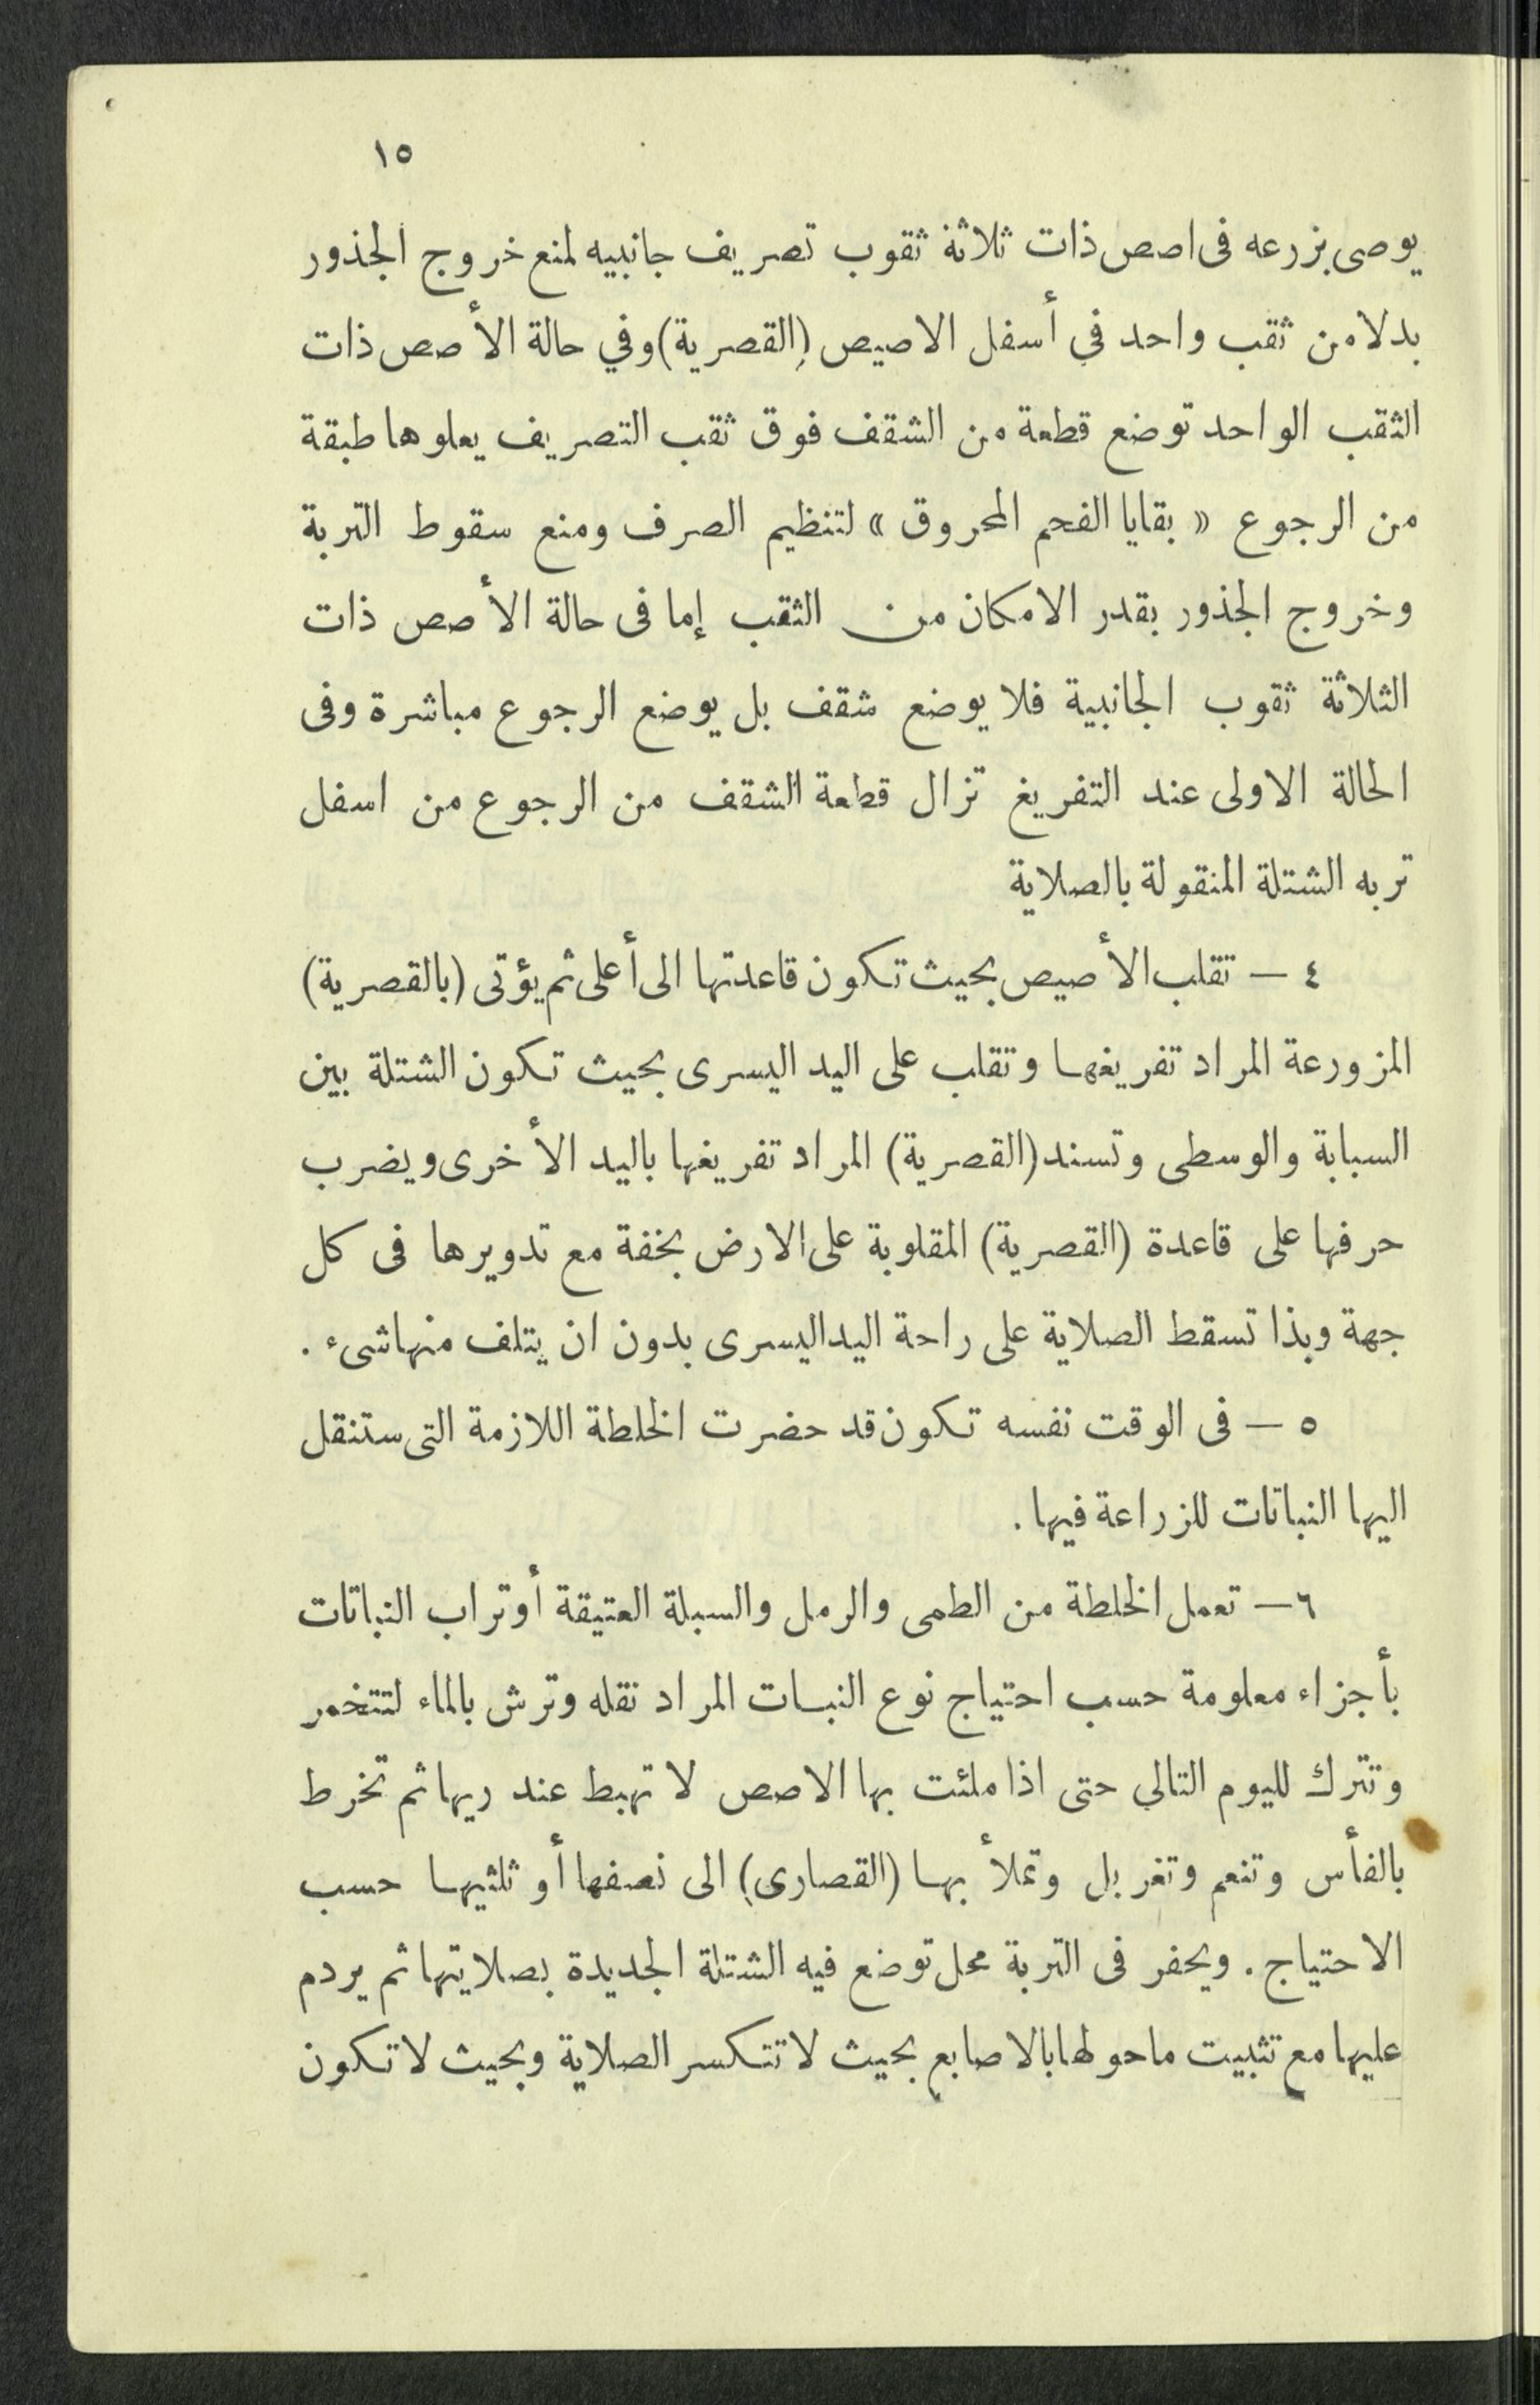 ١٥
يوصى بزرعه فى اصص ذات ثلاثة ثقوب تصريف جانبيه لمنع خروج الجذور
بدلا من ثقب واحد في أسفل الاصيص (القصرية) وفي حالة الأصص ذات
الثقب الواحد توضع قطعة من الشقف فوق ثقب التصريف يعلوها طبقة
من الرجوع « بقايا الفحم المحروق » لتنظيم الصرف ومنع سقوط التربة
وخروج الجذور بقدر الامكان من الثقب إما فى حالة الأصص ذات
الثلاثة ثقوب الجانبية فلا يوضع شقف بل يوضع الرجوع مباشرة وفى
الحالة الاولى عند التفريغ تزال قطعة الشقف من الرجوع من اسفل
تربه الشتلة المنقولة بالصلاية
٤ — تقلب الأصيص بحيث تكون قاعدتها الى أعلى ثم يؤتى (بالقصرية)
المزورعة المراد تفريغها وتقلب على اليد اليسرى بحيث تكون الشتلة بين
السبابة والوسطى وتسند (القصرية) المراد تفريغها باليد الأخرى ويضرب
حرفها على قاعدة (القصرية) المقلوبة على الارض بخفة مع تدويرها فى كل
جهة وبذا تسقط الصلاية على راحة اليد اليسرى بدون ان يتلف منها شىء .
٥ — فى الوقت نفسه تكون قد حضرت الخلطة اللازمة التى ستنقل
اليها النباتات للزراعة فيها .
٦ — تعمل الخلطة من الطمى والرمل والسبلة العتيقة أو تراب النباتات
بأجزاء معلومة حسب احتياج نوع النبات المراد نقله وترش بالماء لتتخمر
وتترك لليوم التالي حتى اذا ملئت بها الاصص لا تهبط عند ريها ثم تخرط
بالفأس وتنعم وتغربل وتملأ بها (القصارى) الى نصفها أو ثلثيها حسب
الاحتياج . ويحفر فى التربة محل توضع فيه الشتلة الجديدة بصلايتها ثم يردم
عليها مع تثبيت ماحولها بالاصابع بحيث لا تتكسر الصلاية وبحيث لا تكون